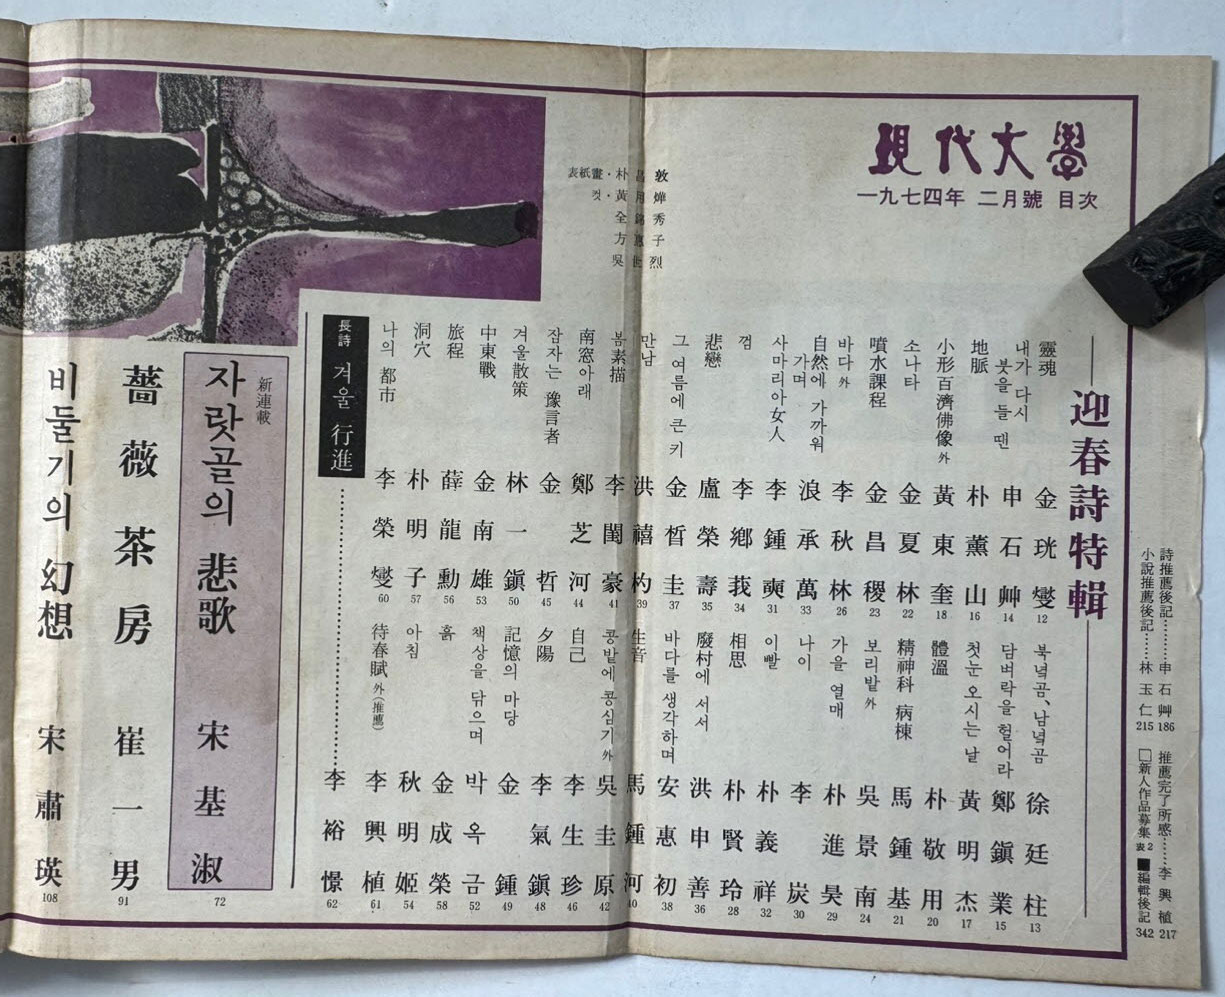 現代文學
一九七四年 二月號 目次
詩推薦後記………申石艸 186
推薦完了所感……李興植 217
小說推薦後記……林玉仁 215
□新人作品募集 表2
■編輯後記 342
迎春詩特輯
靈魂 金珖燮 12
북녘곰, 남녘곰 徐廷柱 13
내가 다시 붓을 들 땐 申石艸 14
담벼락을 헐어라 鄭鎭業 15
地脈 朴薰山 16
첫눈 오시는 날 黃明杰 17
小形百濟佛像 外 黃東奎 18
體溫 朴敬用 20
소나타 金夏林 22
精神科 病棟 馬鍾基 21
噴水課程 金昌稷 23
보리밭 外 吳景南 24
바다 外 李秋林 26
가을 열매 朴進昊 29
自然에 가까워가며 浪承萬 33
나이 李炭 30
사마리아女人 李鍾奭 31
이빨 朴義祥 32
껌 李鄕莪 34
相思 朴賢玲 28
悲戀 盧榮壽 35
廢村에 서서 洪申善 36
그 여름에 큰 키 金晳圭 37
바다를 생각하며 安惠初 38
만남 洪禧杓 39
生音 馬鍾河 40
봄素描 李閏豪 41
콩밭에 콩심기 外 吳圭原 42
南窓아래 鄭芝河 44
自己 李生珍 46
잠자는 豫言者 金哲 45
夕陽 李氣鎭 48
겨울散策 林一鎭 50
記憶의 마당 金鍾 49
中東戰 金南雄 53
책상을 닦으며 박옥금 52
旅程 薛龍勳 56
흙 金成榮 58
洞穴 朴明子 57
아침 秋明姬 54
나의 都市 李榮燮 60
待春賦 外(推薦) 李興植 61
長詩 겨울 行進………李裕憬 62
表紙畫·朴昌敦
컷·黃用燁
全錦秀
方惠子
吳世烈
新連載
자랏골의 悲歌 宋基淑 72
薔薇茶房 崔一男 91
비둘기의 幻想 宋肅瑛 108